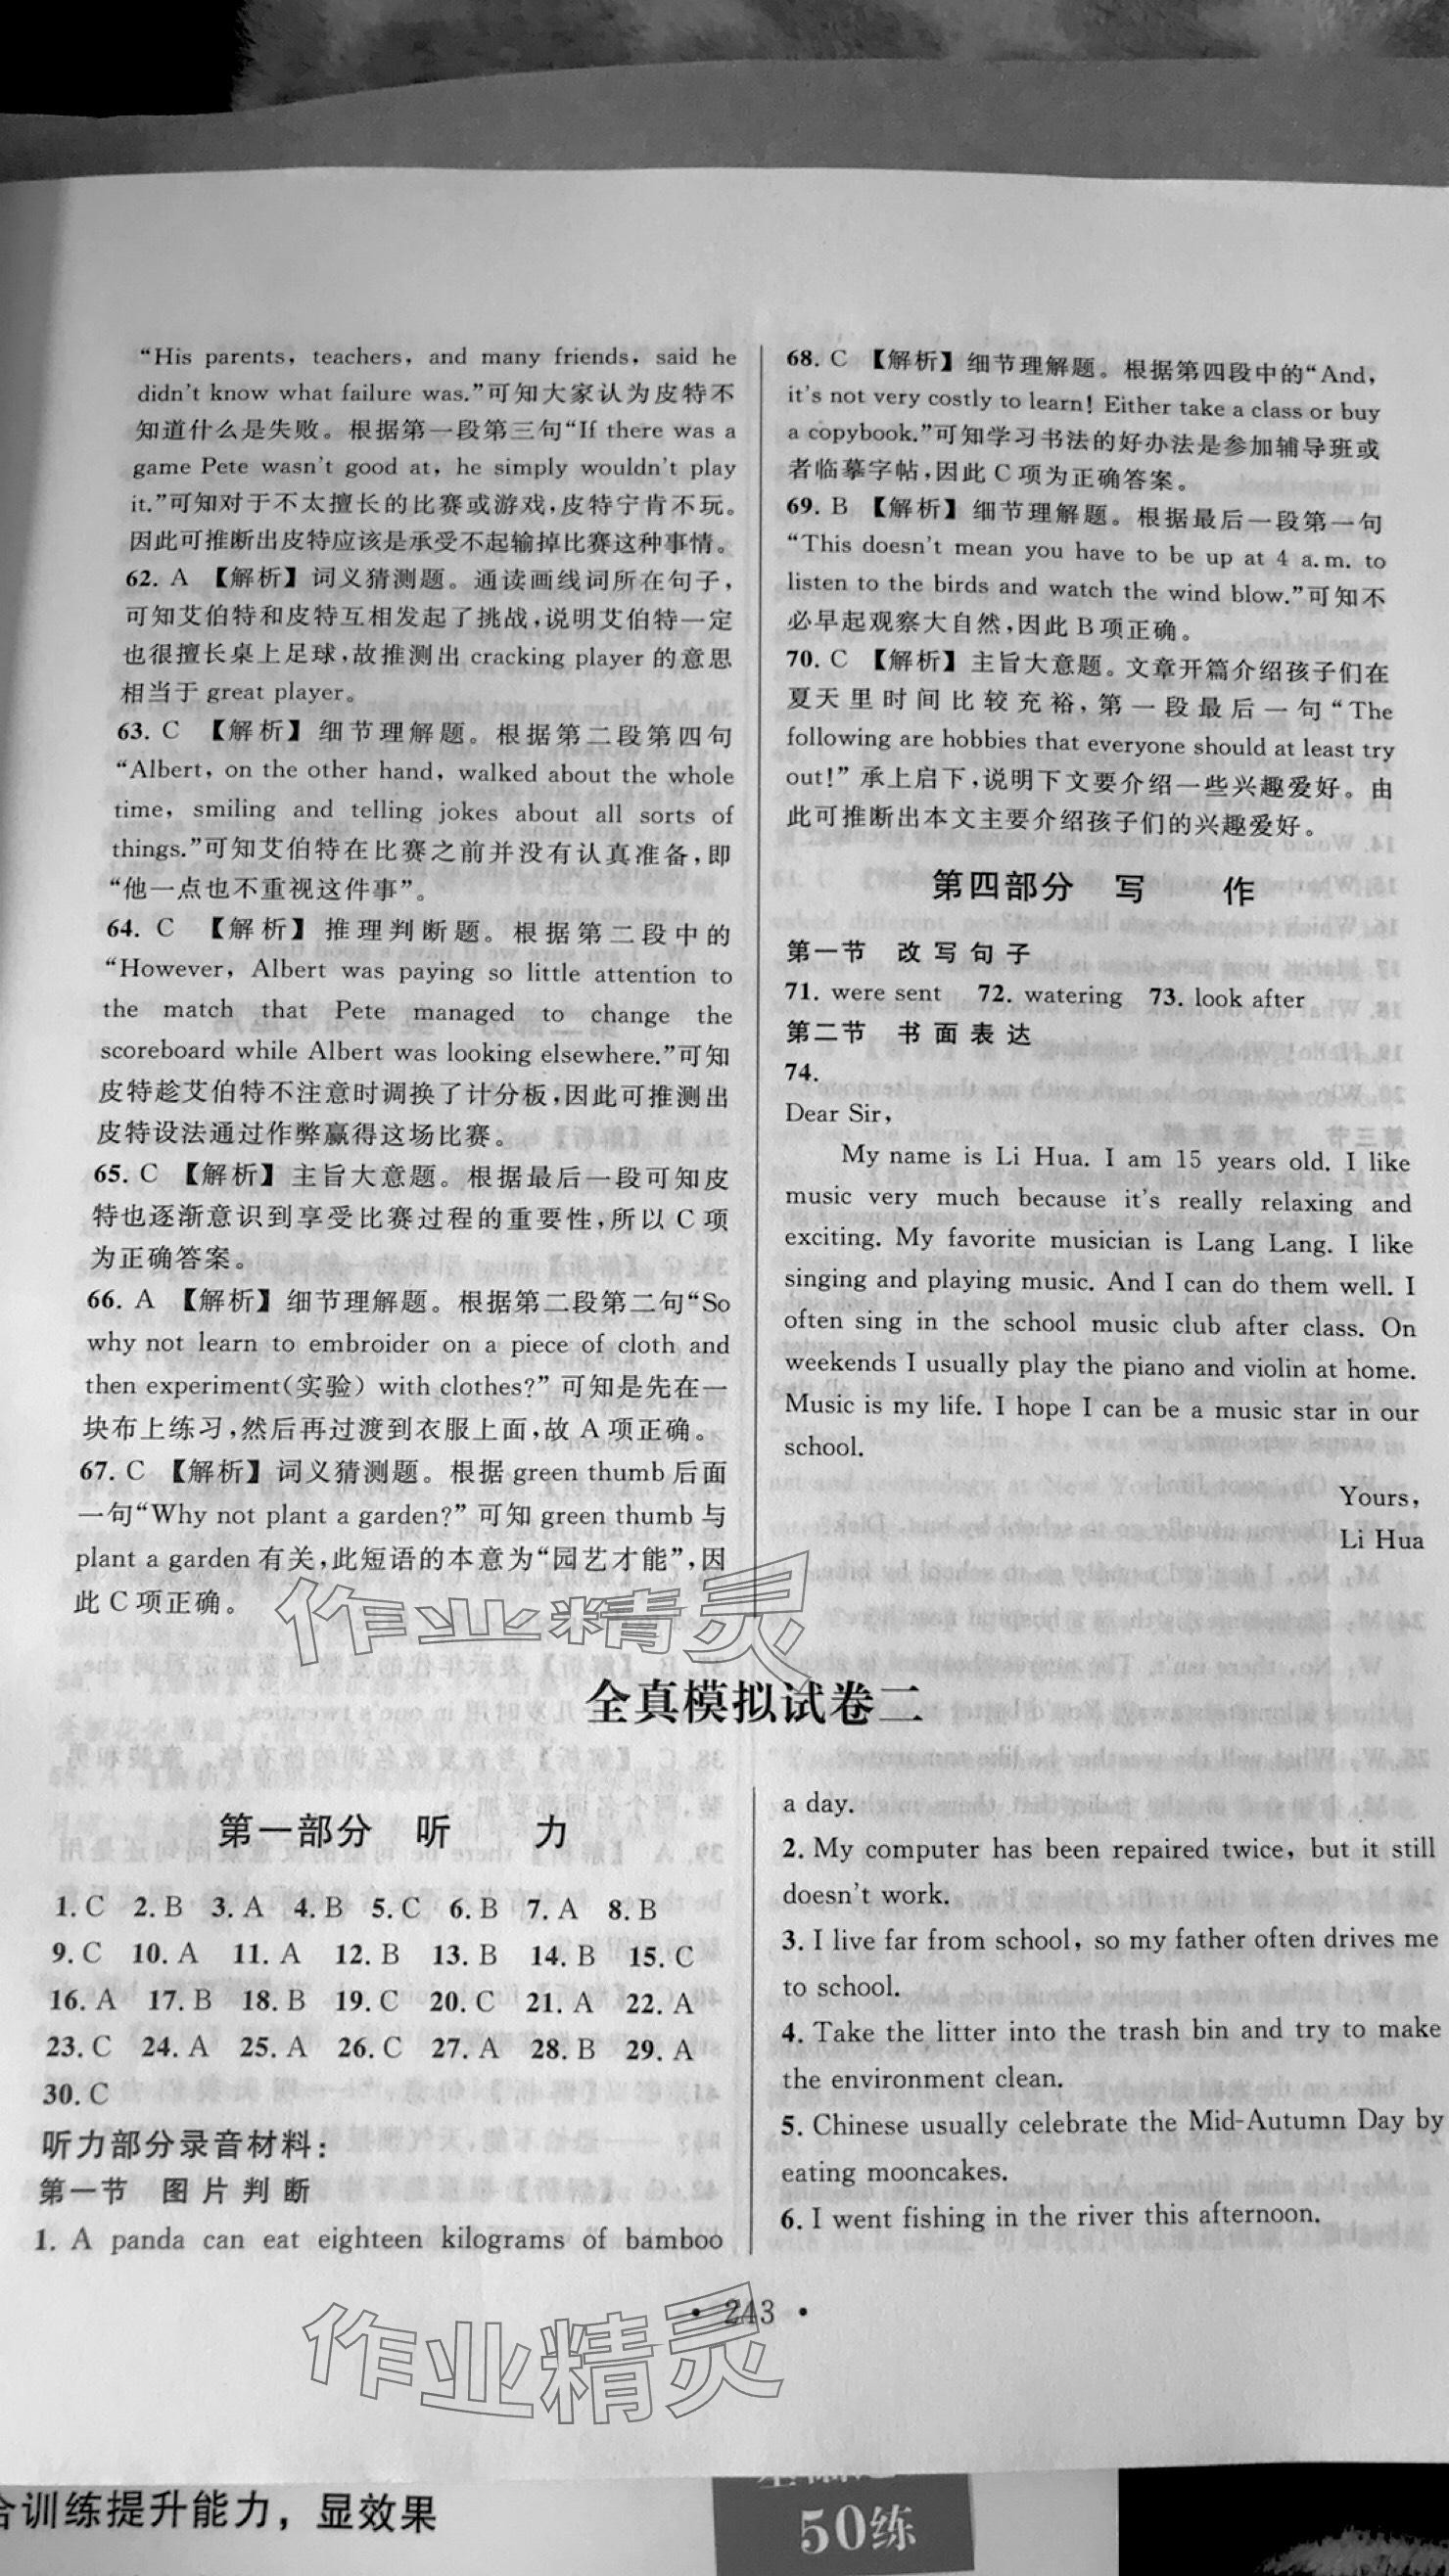 “His parents, teachers, and many friends, said he
didn't know what failure was.”可知大家认为皮特不
知道什么是失败。根据第一段第三句“If there was a
game Pete wasn't good at, he simply wouldn't play
it.”可知对于不太擅长的比赛或游戏,皮特宁肯不玩。
因此可推断出皮特应该是承受不起输掉比赛这种事情。
62. A 【解析】词义猜测题。通读画线词所在句子,
可知艾伯特和皮特互相发起了挑战,说明艾伯特一定
也很擅长桌上足球,故推测出 cracking player 的意思
相当于 great player。
63. C 【解析】细节理解题。根据第二段第四句
“Albert, on the other hand, walked about the whole
time, smiling and telling jokes about all sorts of
things.”可知艾伯特在比赛之前并没有认真准备,即
“他一点也不重视这件事”。
64. C 【解析】推理判断题。根据第二段中的
“However, Albert was paying so little attention to
the match that Pete managed to change the
scoreboard while Albert was looking elsewhere.”可知
皮特趁艾伯特不注意时调换了计分板,因此可推测出
皮特设法通过作弊赢得这场比赛。
65. C 【解析】主旨大意题。根据最后一段可知皮
特也逐渐意识到享受比赛过程的重要性,所以 C 项
为正确答案。
66. A 【解析】细节理解题。根据第二段第二句“So
why not learn to embroider on a piece of cloth and
then experiment(实验) with clothes?” 可知是先在一
块布上练习,然后再过渡到衣服上面,故 A 项正确。
67. C 【解析】词义猜测题。根据 green thumb 后面
一句“Why not plant a garden?” 可知 green thumb 与
plant a garden 有关,此短语的本意为“园艺才能”,因
此 C 项正确。
68. C 【解析】细节理解题。根据第四段中的“And,
it's not very costly to learn! Either take a class or buy
a copybook.”可知学习书法的好办法是参加辅导班或
者临摹字帖,因此 C 项为正确答案。
69. B 【解析】细节理解题。根据最后一段第一句
“This doesn't mean you have to be up at 4 a.m. to
listen to the birds and watch the wind blow.”可知不
必早起观察大自然,因此 B 项正确。
70. C 【解析】主旨大意题。文章开篇介绍孩子们在
夏天里时间比较充裕,第一段最后一句“The
following are hobbies that everyone should at least try
out!” 承上启下,说明下文要介绍一些兴趣爱好。由
此可推断出本文主要介绍孩子们的兴趣爱好。
第四部分 写 作
第一节 改写句子
71. were sent 72. watering 73. look after
第二节 书面表达
74.
Dear Sir,
My name is Li Hua. I am 15 years old. I like
music very much because it's really relaxing and
exciting. My favorite musician is Lang Lang. I like
singing and playing music. And I can do them well. I
often sing in the school music club after class. On
weekends I usually play the piano and violin at home.
Music is my life. I hope I can be a music star in our
school.
Yours,
Li Hua
作业精灵
全真模拟试卷二
第一部分 听 力
1. C 2. B 3. A 4. B 5. C 6. B 7. A 8. B
9. C 10. A 11. A 12. B 13. B 14. B 15. C
16. A 17. B 18. B 19. C 20. C 21. A 22. A
23. C 24. A 25. A 26. C 27. A 28. B 29. A
30. C
听力部分录音材料:
第一节 图片判断
1. A panda can eat eighteen kilograms of bamboo
a day.
2. My computer has been repaired twice, but it still
doesn't work.
3. I live far from school, so my father often drives me
to school.
4. Take the litter into the trash bin and try to make
the environment clean.
5. Chinese usually celebrate the Mid-Autumn Day by
eating mooncakes.
6. I went fishing in the river this afternoon.
• 243 •
作业精灵
合训练提升能力，显效果
50练